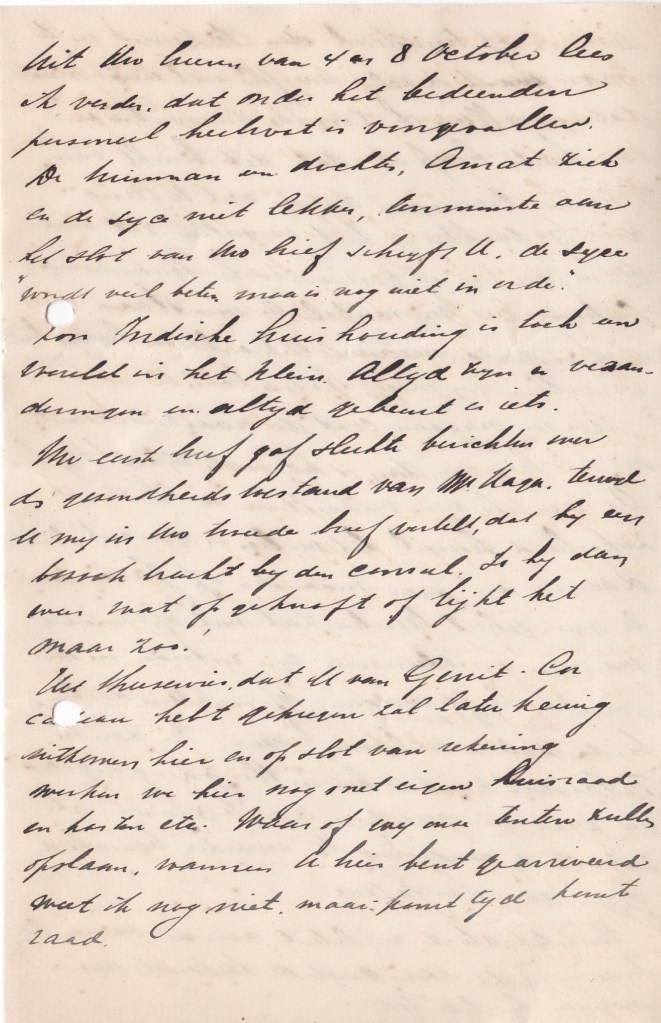 Uit Uw brieven van 4 en 8 October lees
ik verder, dat onder het bedienden
personeel heelwat is voorgevallen.
De huisman en dochter, Amat ziek
en de syce niet lekker, tenminste aan
het slot van Uw brief schrijft U, de syce
"wordt veel beter, maar is nog niet in orde".
Zoo'n Indische huishouding is toch een
wereld in het klein. Altyd zyn er veran-
deringen en altyd gebeurt er iets.
Uw eerste brief gaf slechte berichten over
de gezondheidstoestand van Mr Kaga, terwyl
U my in Uw tweede brief vertelt, dat hy een
bezoek bracht by den consul. Is hy dan
weer wat opgeknapt of lijkt het
maar zoo!
Het theeservies, dat U van Gerrit-Cor
cadeau hebt gekregen zal later keurig
uitkomen hier en op slot van rekening
werken we hier nog met eigen huisraad
en kosten etc. Waar of wy onze tenten zullen
opslaan, wanneer U hier bent gearriveerd
weet ik nog niet, maar: komt tyd komt
raad.